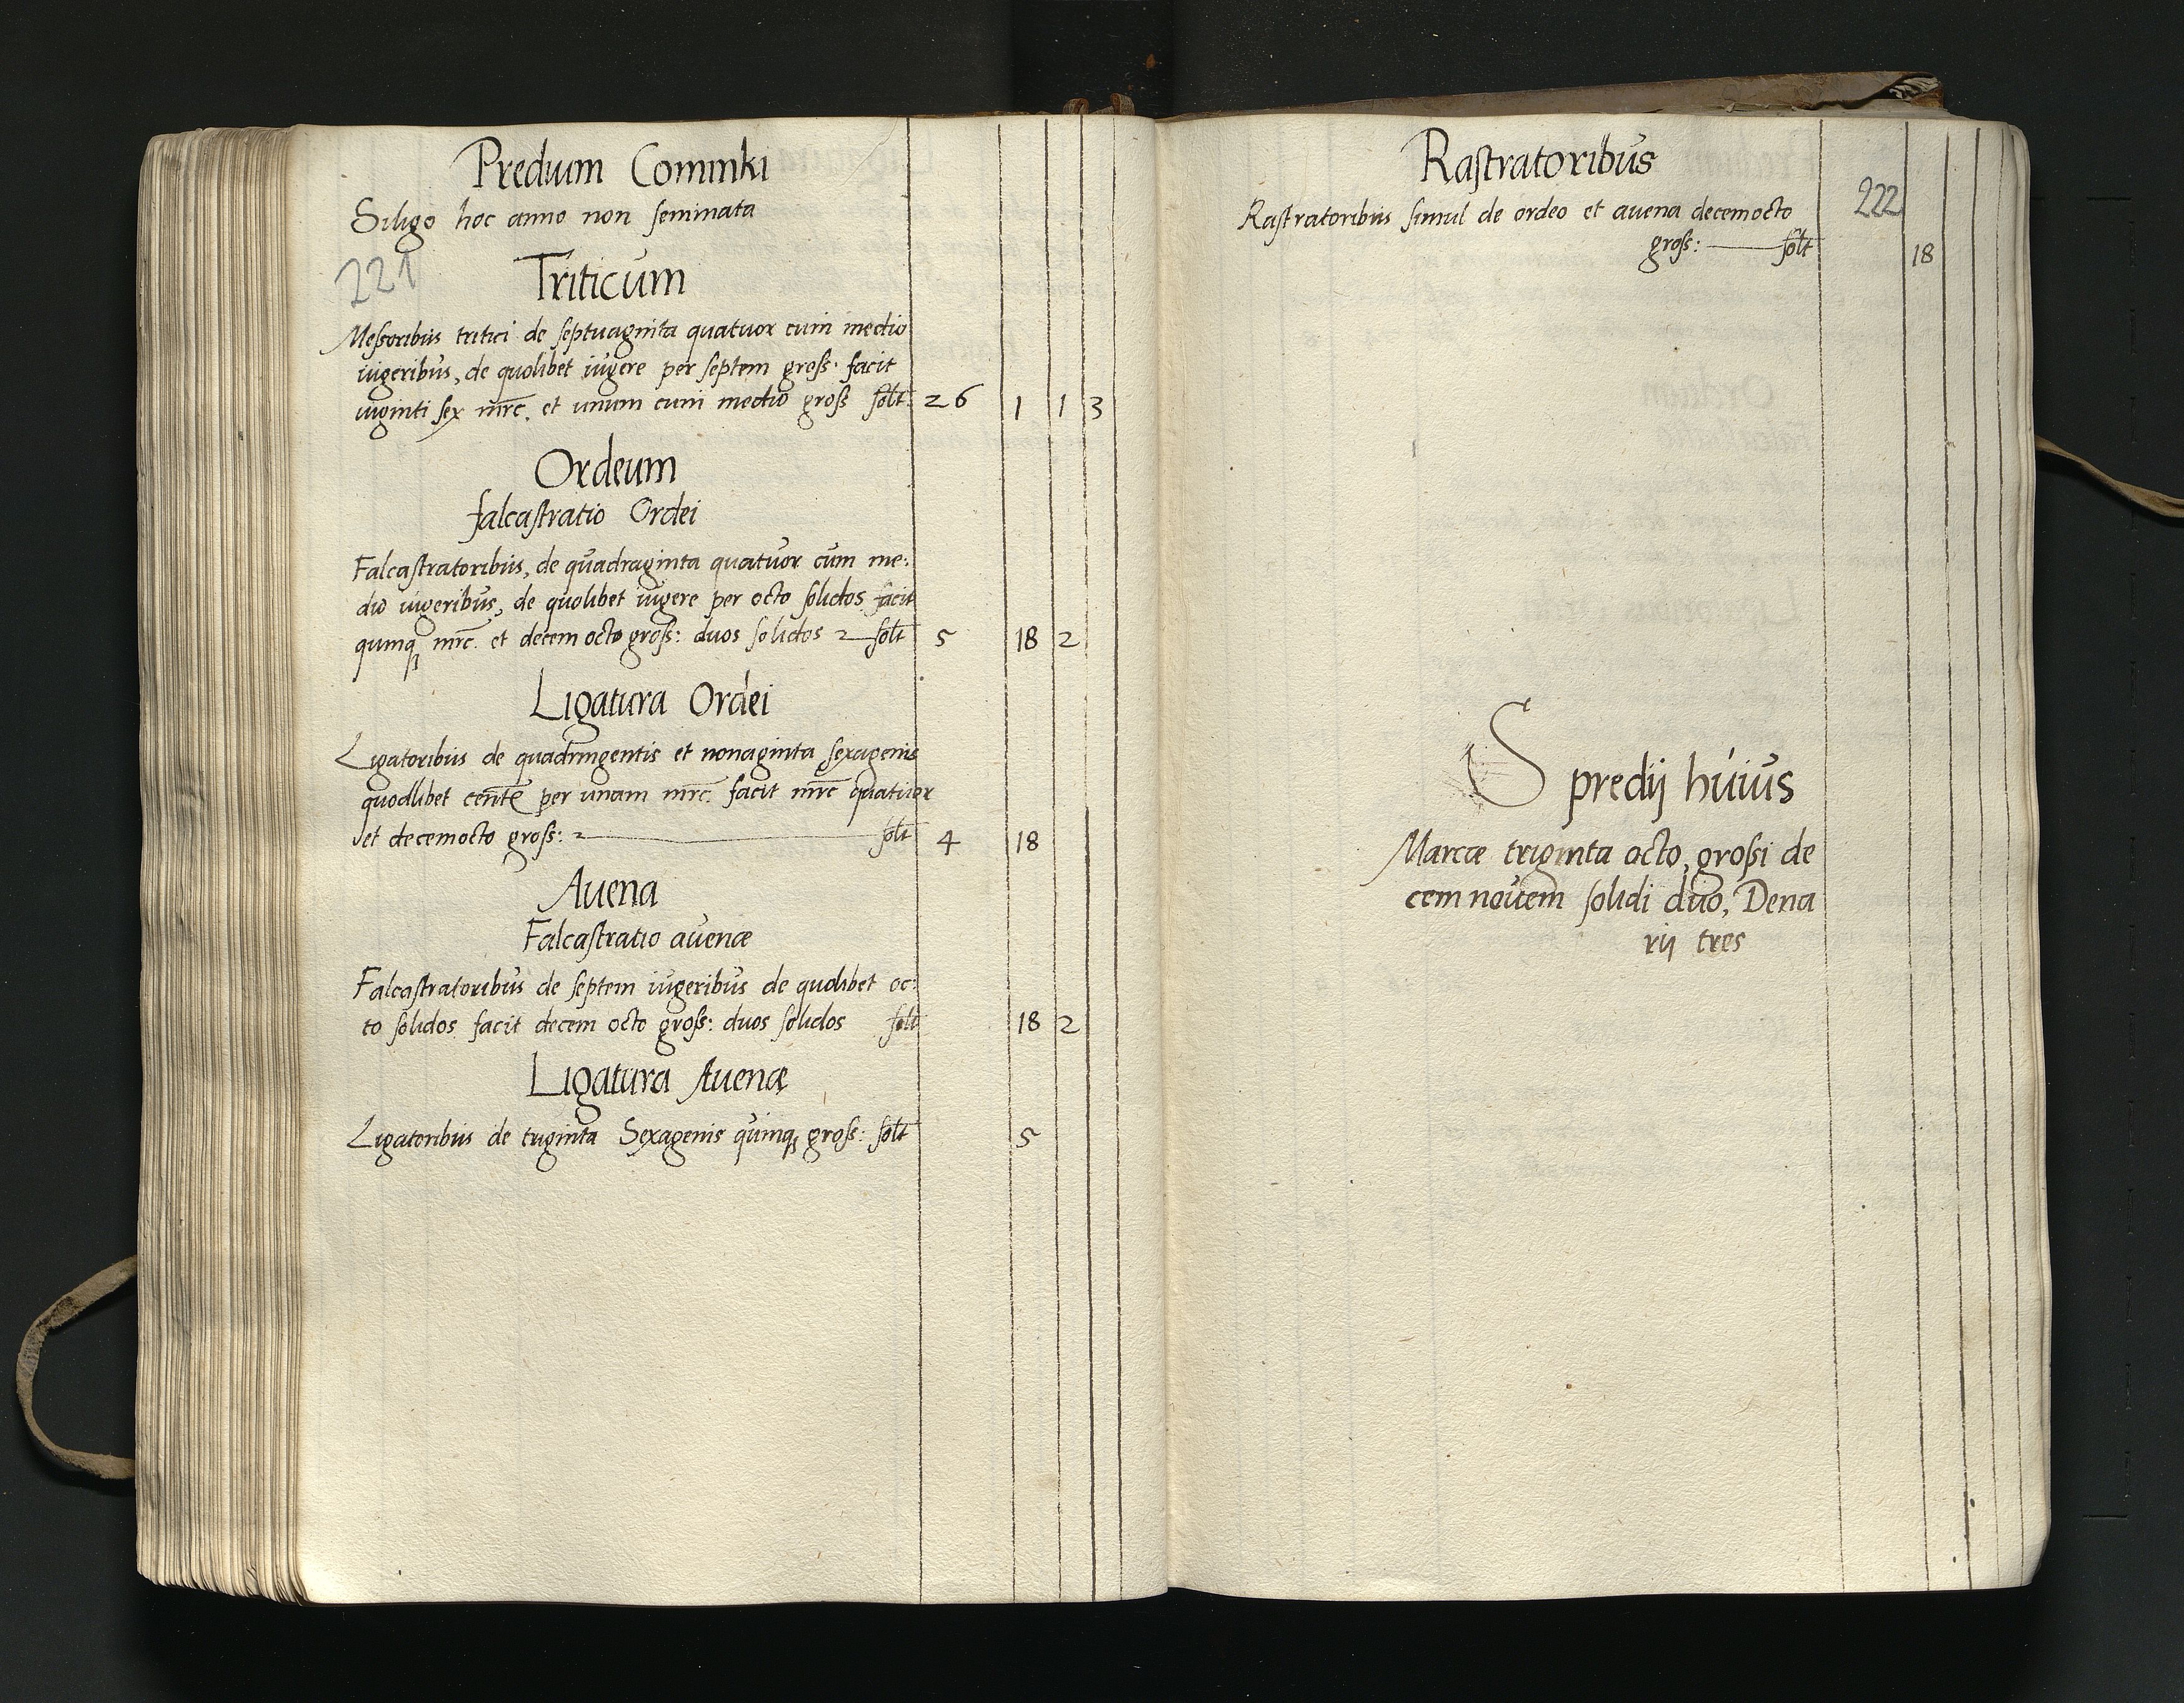 Predium Cominki
Siligo hoc anno non seminata
221
Triticum
Messoribus tritici de septuaginta quatuor cum medio
iugeribus, de quolibet iugere per septem gross: facit
uiginti sex mrc. et unum cum medio gross solt: 26 1 1 3
Ordeum
falcastratio Ordei
Falcastratoribus, de quadraginta quatuor cum me:
dio iugeribus, de quolibet iugere per octo solidos facit
quinq mrc. et decem octo gross: duos solidos solt 5 18 2
Ligatura Ordei
Ligatoribus de quadringentis et nonaginta sexagenis
quodlibet cent per unam mrc. facit mrc quatuor
et decemocto gross: solt 4 18
Auena
Falcastratio auenæ
Falcastratoribus de septem iugeribus de quolibet oc:
to solidos facit decem octo gross: duos solidos solt 18 2
Ligatura Auenæ
Ligatoribus de triginta Sexagenis quinq gross: solt 5
Rastratoribus
222
Rastratoribus simul de ordeo et auena decemocto
gross: solt 18
S predij huius
Marcæ triginta octo, grossi de
cem nouem solidi duo, Dena
rij tres